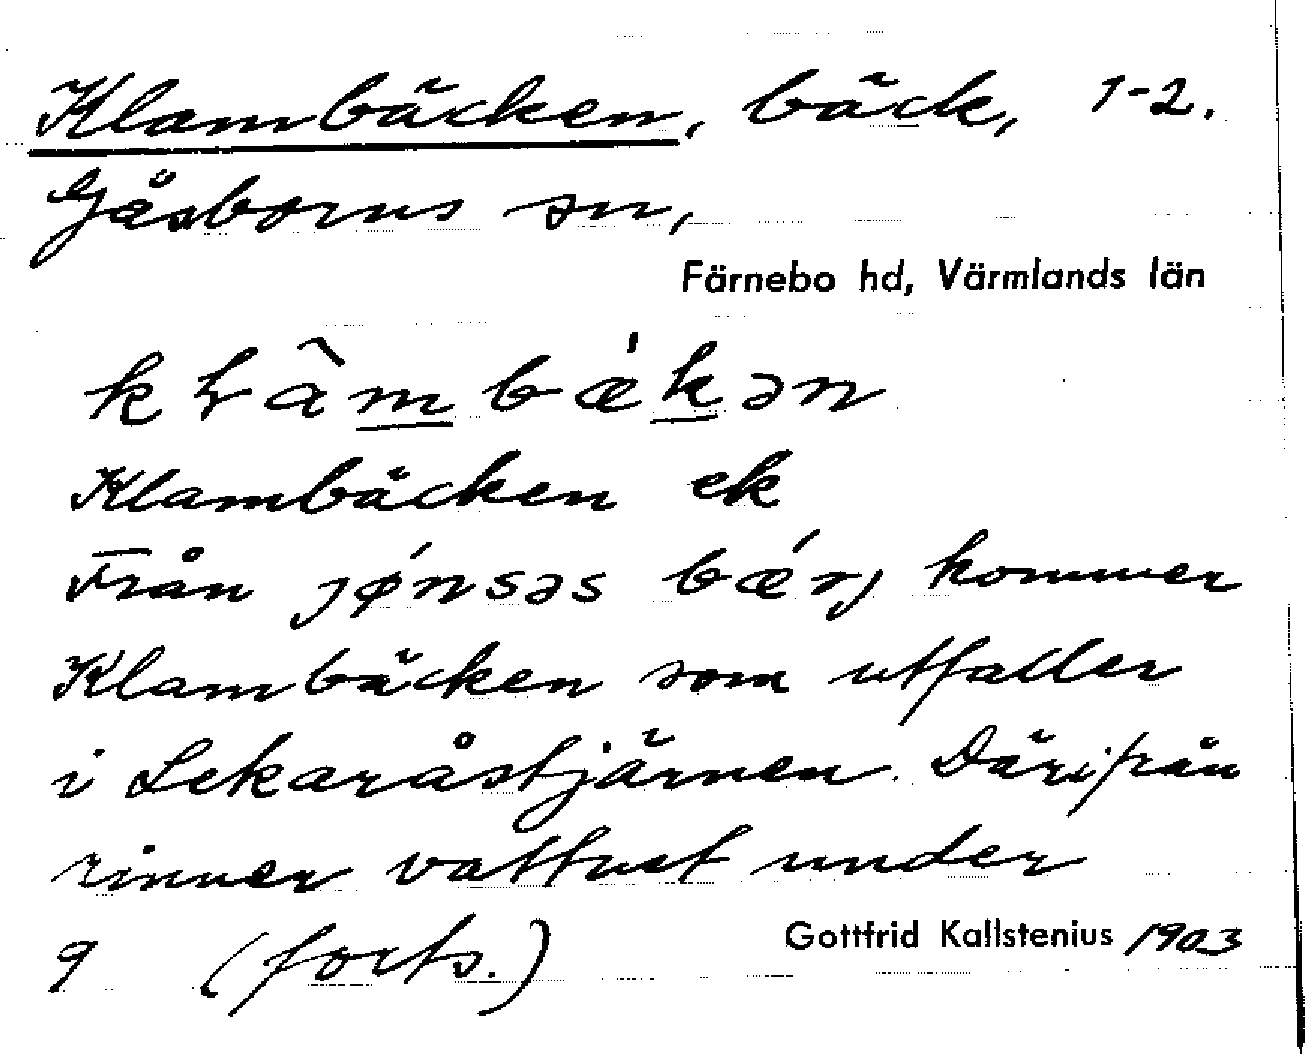 Klambäcken, bäck, 1-2.
Gåsborns sn,
Färnebo hd, Värmlands län
kɽàmbǽkən
Klambäcken ek
Från jǿnsəs bǽrj kommer
Klambäcken som utfaller
i Lekaråstjärnen. Därifrån
rinner vattnet under
9 (forts.) Gottfrid Kallstenius 1903